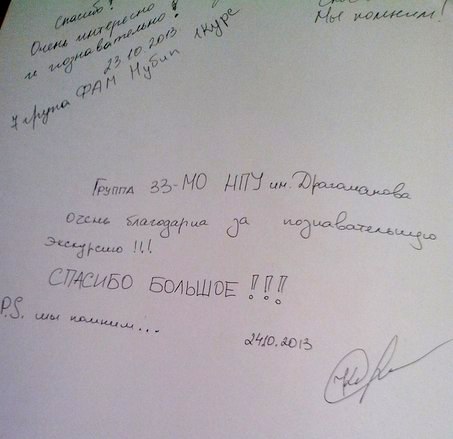 Спасибо!
Очень интересно
и познавательно!
23.10.2013
7 група ФАМ Нубип 1курс
Мы помним!
Группа 33-МО НПУ им. Драгоманова
очень благодарна за познавательную
экскурсию !!!
СПАСИБО БОЛЬШОЕ !!!
P.S. мы помним...
24.10.2013